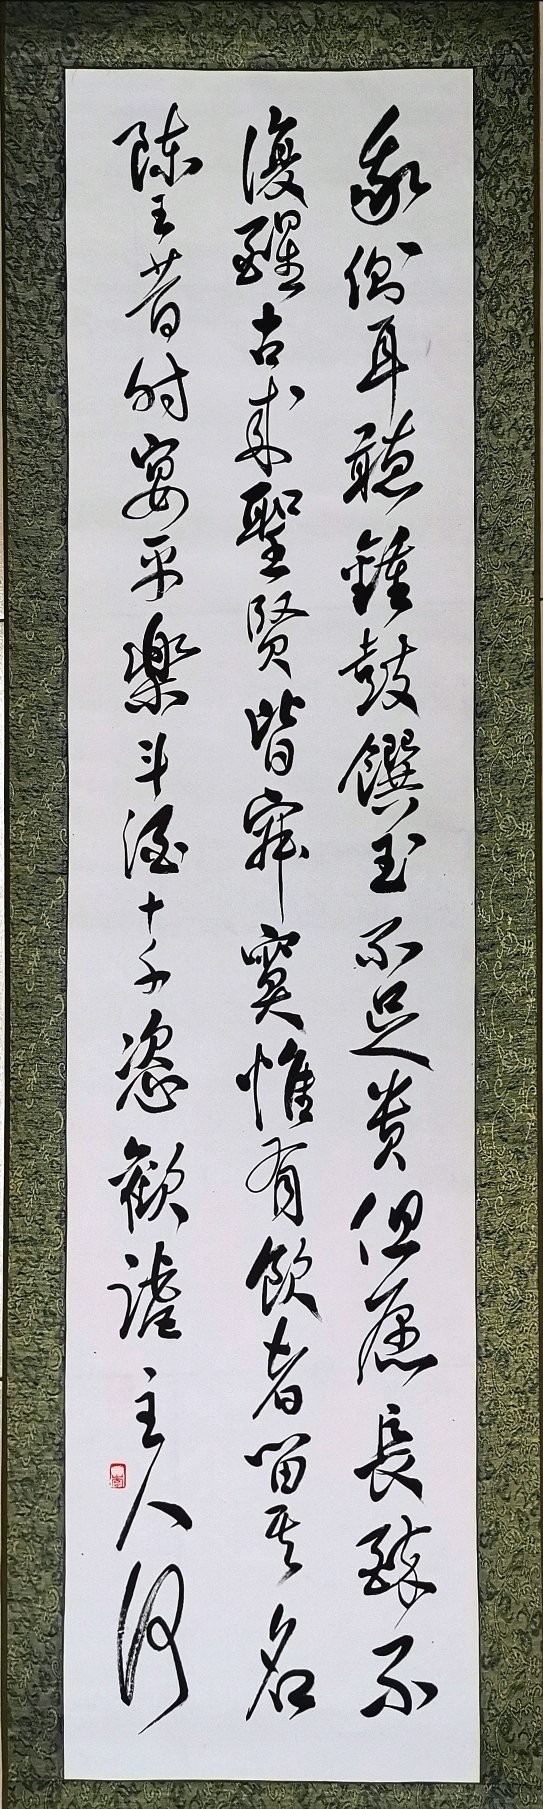 我側耳聽鍾鼓饌玉不足貴但愿長醉不
復醒古來聖賢皆寂寞惟有飲者留其名
陳王昔時宴平樂斗酒十千恣歡謔主人何